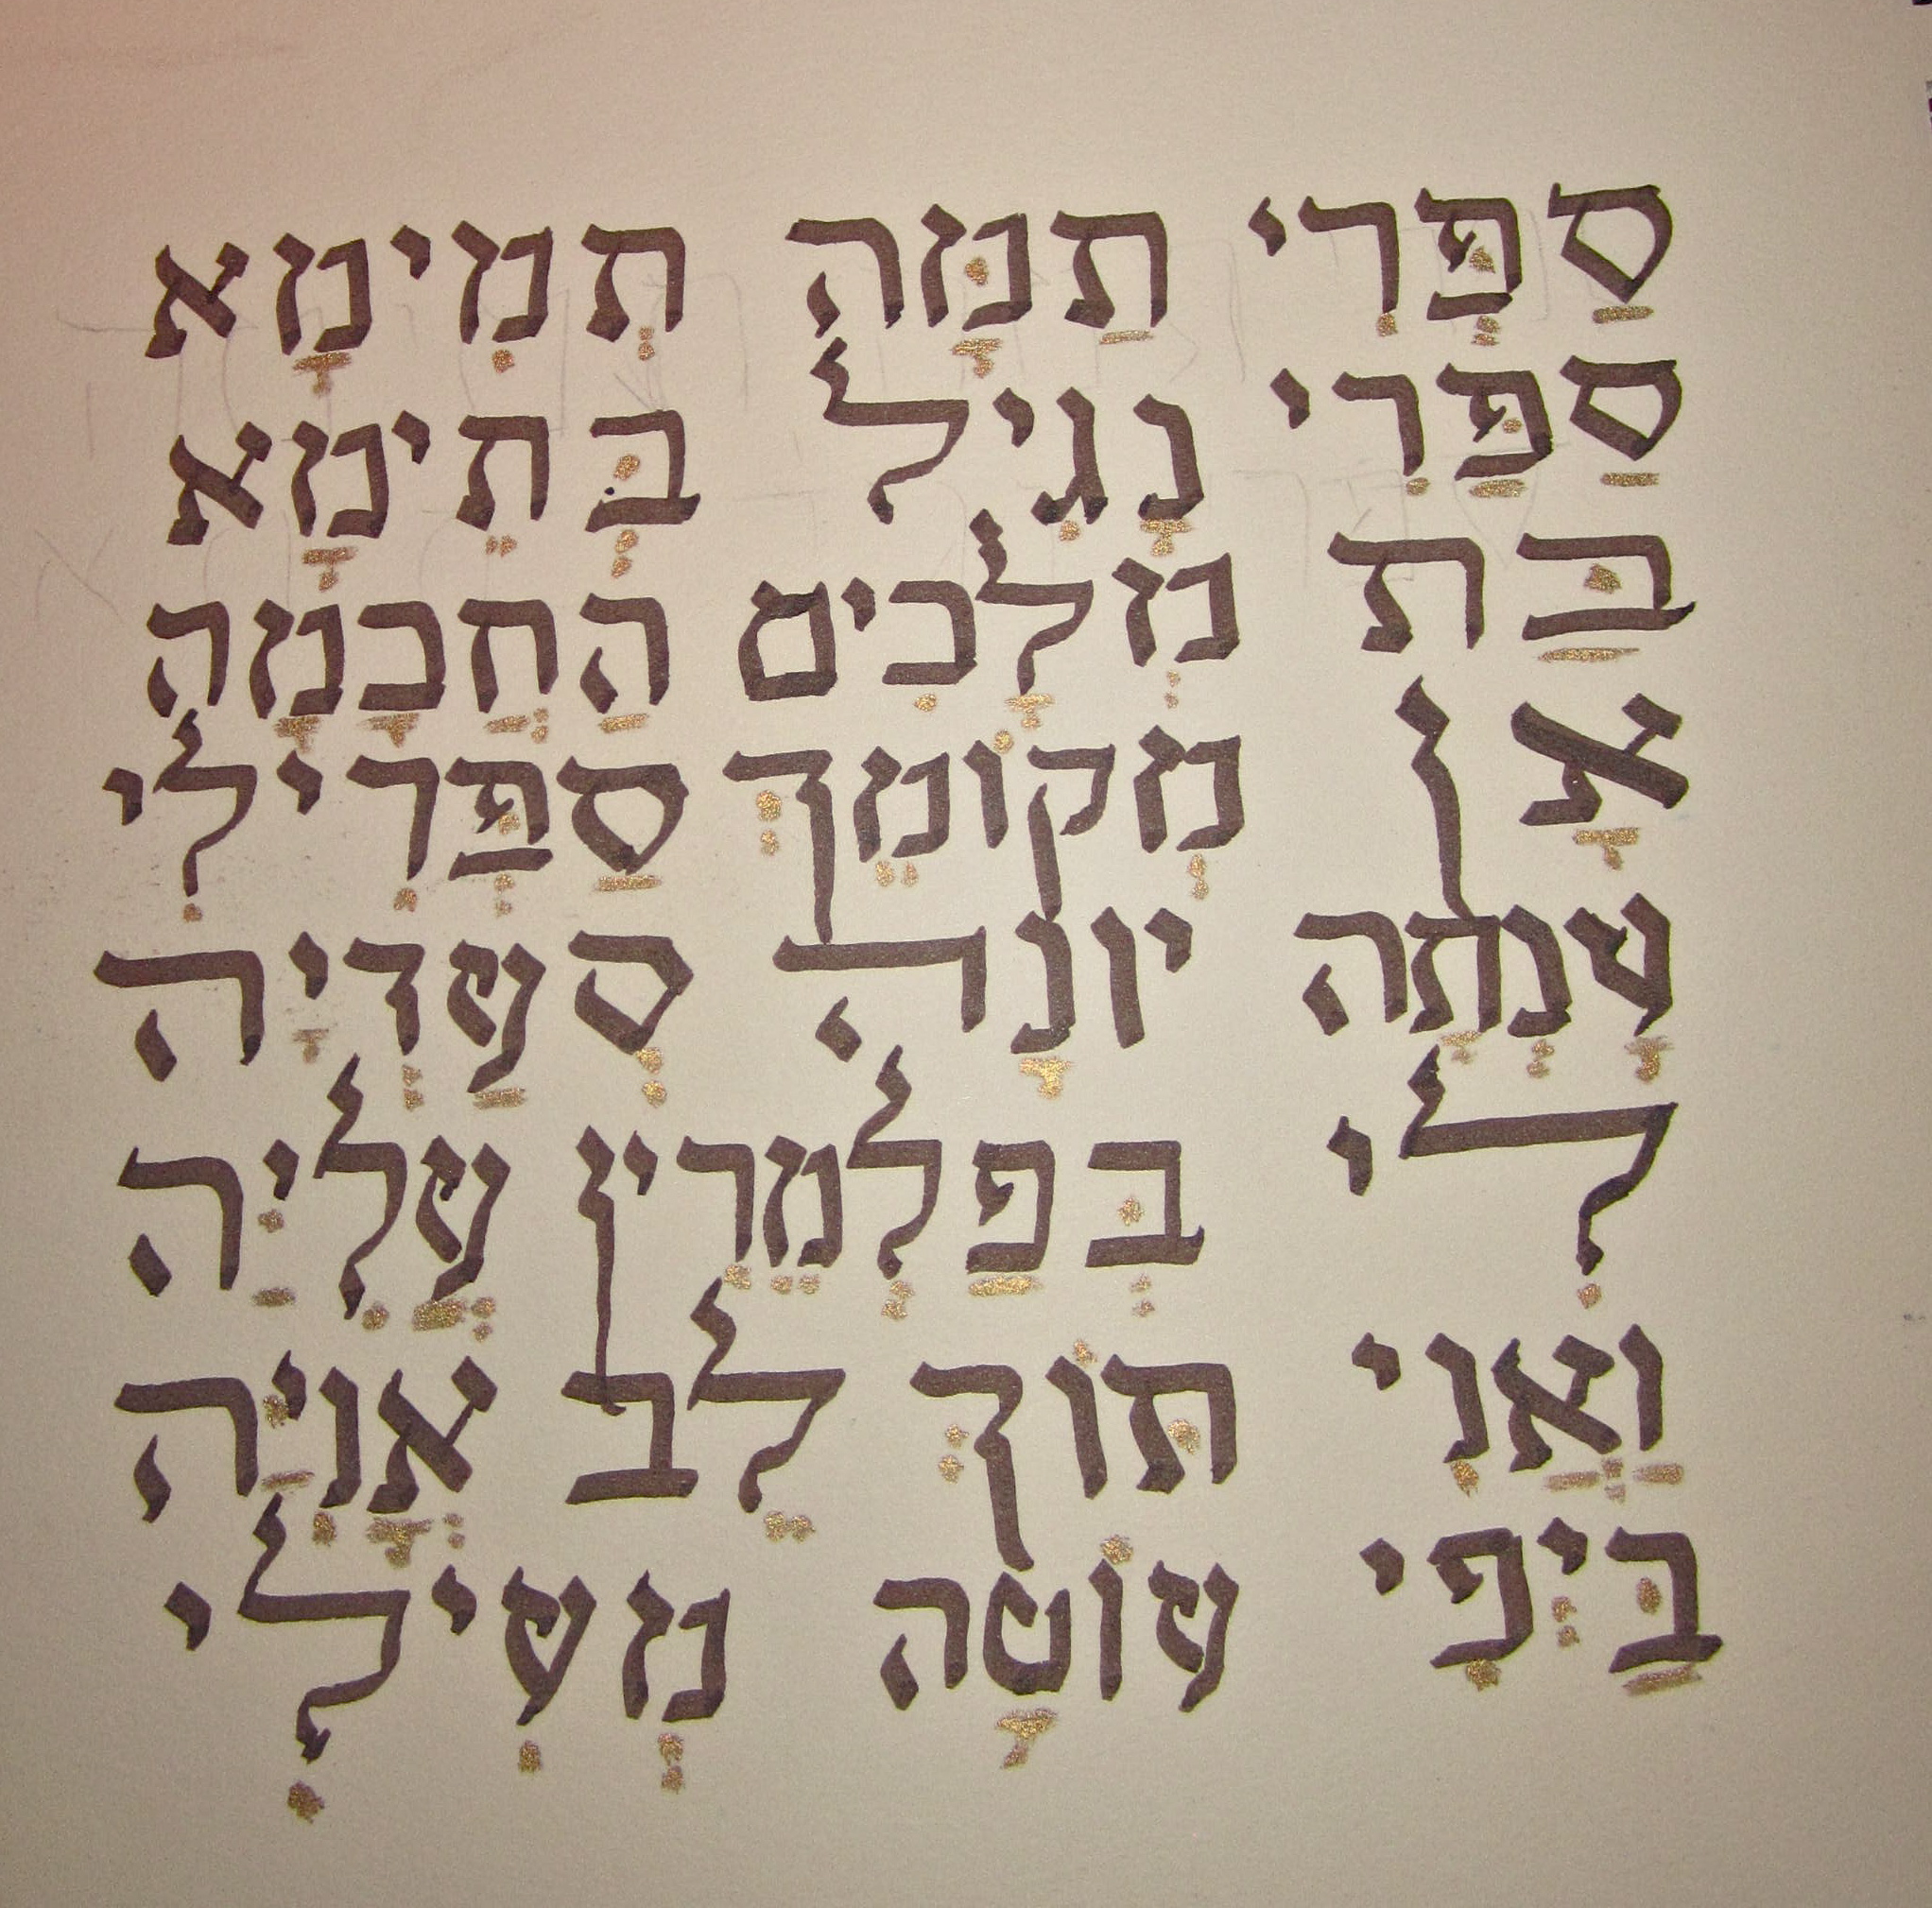 סַפְּרִי תַמָּה תְמִימָא
סַפַּרִי נָגִיל בְּתֵימָא
בַּת מְלָכִים הַחֲכָמָה
אָן מְקוֹמֵךְ סַפְּרִי לִי
עָנְתָה יונָה סְעַדְיָה
לִי בְּפַלְמֵרִין עֲלִיַּה
וַאֲנִי תּוֹךְ לֵב אֳנִיַּה
בַּיְפִי עוֹטָה מְעִילִי